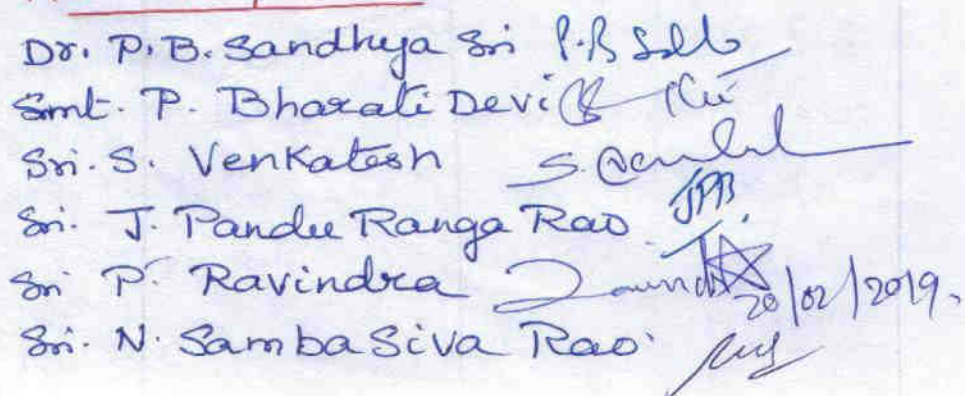 Dr. P.B. Sandhya Sri
Smt. P. Bharati Devi
Sri. S. Venkatesh
Sri. J. Pandu Ranga Rao JPR
Sri P. Ravindra 20/02/2019.
Sri. N. Samba Siva Rao